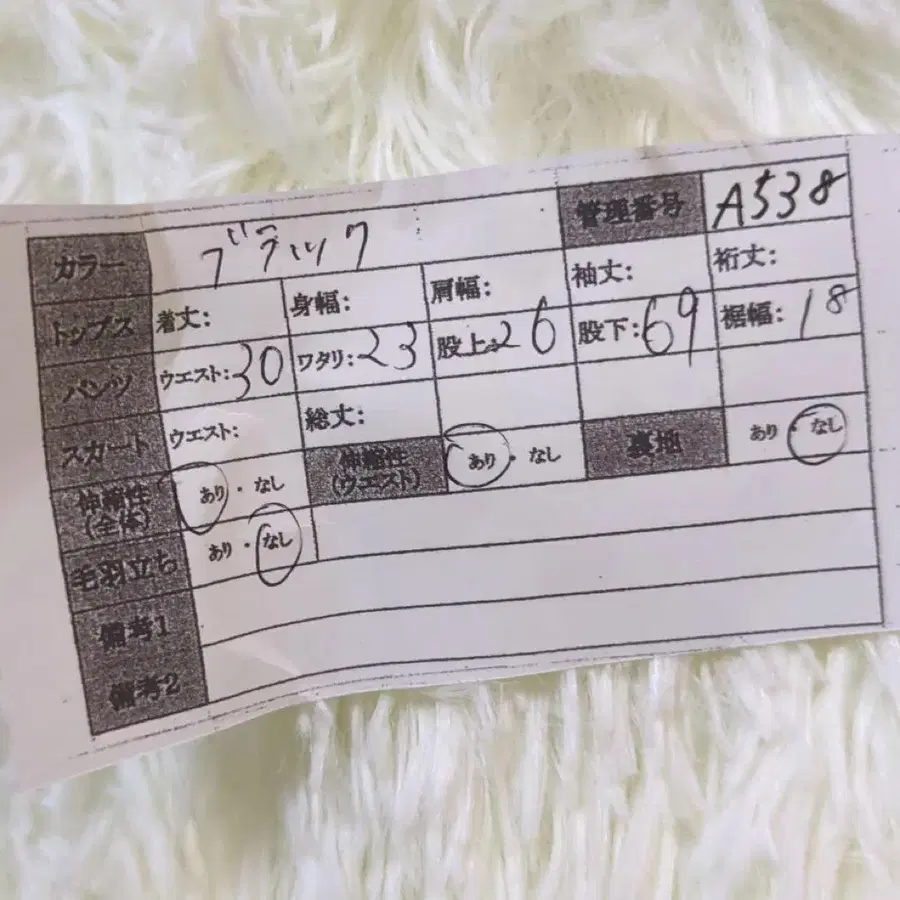 カラー ブラック 管理番号 A538
トップス 着丈: 身幅: 肩幅: 袖丈: 裄丈:
パンツ ウエスト:30 ワタリ:23 股上:26 股下:69 裾幅:18
スカート ウエスト: 総丈:
伸縮性(全体) あり・なし 伸縮性(ウエスト) あり・なし 裏地 あり・なし
毛羽立ち あり・なし
備考1
備考2